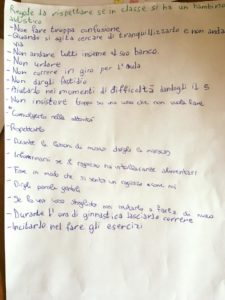 Regole da rispettare se in classe si ha un bambino
autistico
- Non fare troppa confusione
- Quando si agita cercare di tranquillizzarlo e non andar
via
- Non andare tutti insieme al suo banco.
- Non urlare
- Non correre in giro per l'aula
- Non dargli fastidio
- Aiutarlo nei momenti di difficoltà dandogli il 5
- Non insistere troppo su una cosa che non vuole fare
- Coinvolgerlo nelle attività
- Rispettarlo
- Durante le lezioni di musica dargli le
- Informarsi se il ragazzo ha intolleranze alimentari
- Fare in modo che si senta un ragazzo come noi
- Dirgli parole gentili
- Se fa una cosa sbagliata non a farla di nuovo
- Durante l'ora di ginnastica lasciarlo correre
- Incitarlo nel fare gli esercizi